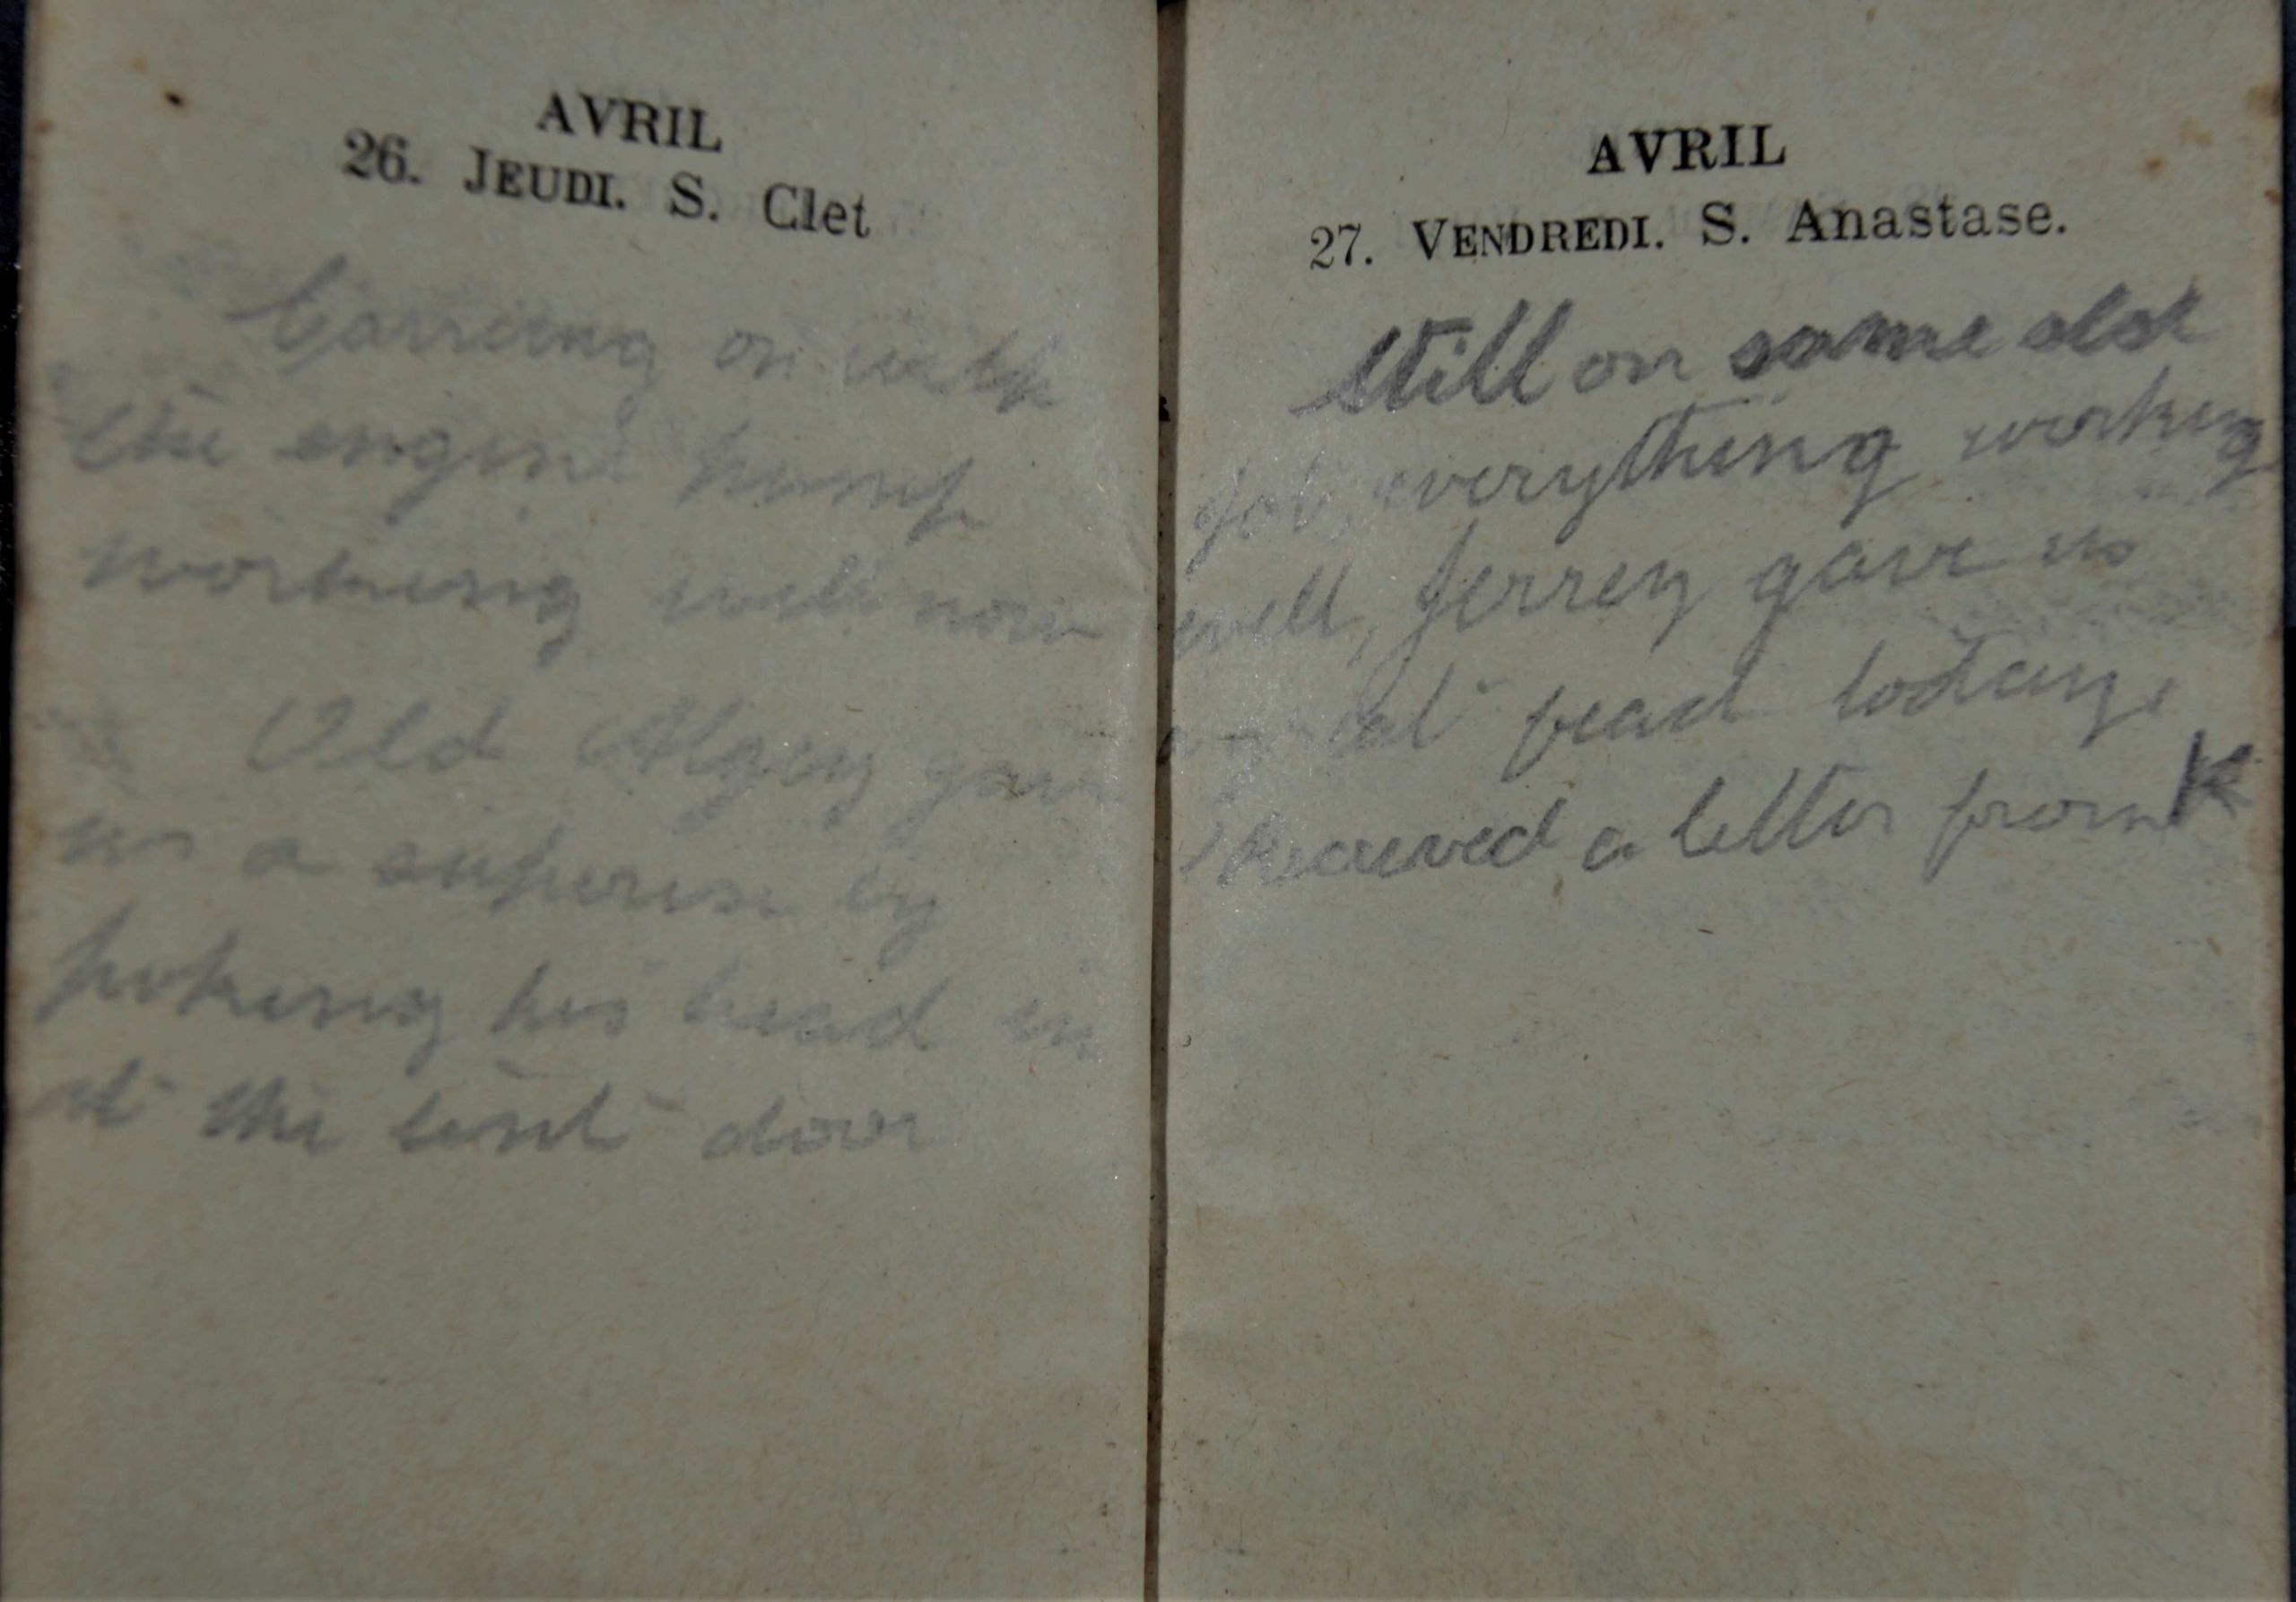 AVRIL
26. JEUDI. S. Clet
Carrieng on with
the engine pump
working well now
Old Algey gave
us a suprise by
poking his head in
at the tent door
AVRIL
27. VENDREDI. S. Anastase.
Still on same old
job, everything working
well, Jerrey gave us
a feed today,
Received a letter from K